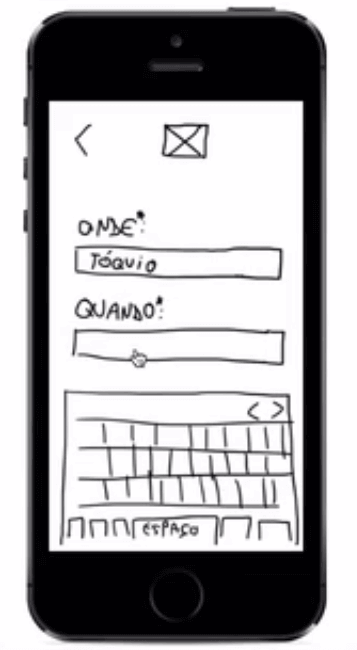 ONDE*:
TÓQUIO
QUANDO*:
ESPAÇO